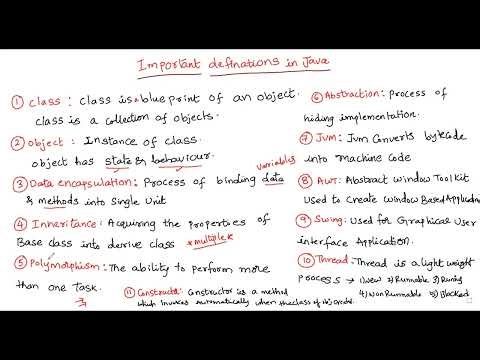 Important definations in Java
① Class : Class is a blue print of an object.
class is a collection of objects.
② Object : Instance of class.
object has state & behaviour.
variables
③ Data encapsulation : Process of binding data
& methods into Single Unit
④ Inheritance : Acquiring the properties of
Base class into derive class * multiple *
⑤ Polymorphism : The ability to perform more
than one task.
⑥ Abstraction : process of
hiding implementation.
⑦ Jvm : Jvm Converts byte code
into Machine Code
⑧ AWT : Abstract Window Tool Kit
used to Create window Based Application
⑨ Swing : Used for Graphical User
interface Application.
⑩ Thread : Thread is a light weight
process → 1) New 2) Runnable 3) Runing
4) Non Runnable 5) Blocked
⑪ Constructor : Constructor is a method
which invokes automatically when the class of obj